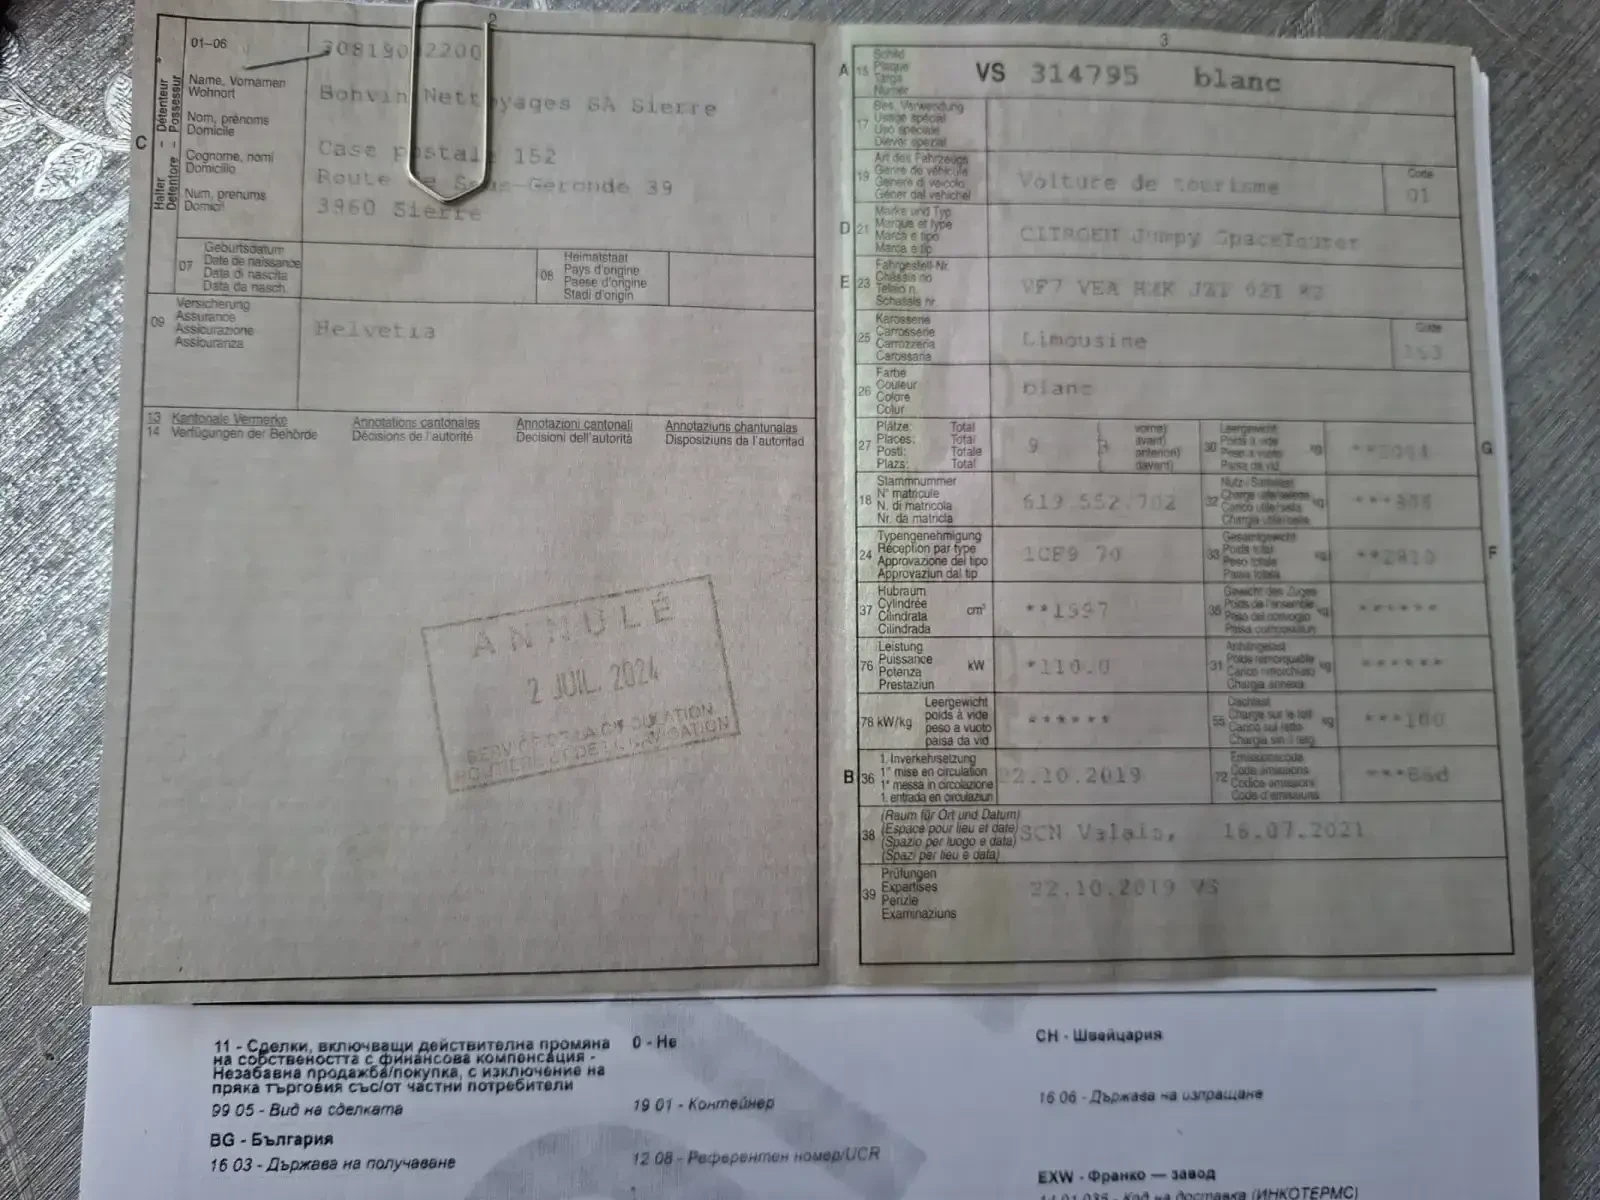 2
01–06
308190 2200
Halter – Détenteur
Detentore – Possessur
C
Name, Vornamen
Wohnort
Nom, prénoms
Domicile
Cognome, nomi
Domicilio
Num, prenums
Domicil
Bonvin Nettoyages SA Sierre
Case postale 152
Route de Sous-Geronde 39
3960 Sierre
07
Geburtsdatum
Date de naissance
Data di nascita
Data da nasch.
08
Heimatstaat
Pays d'origine
Paese d'origine
Stadi d'origin
09
Versicherung
Assurance
Assicurazione
Assicuranza
Helvetia
13 Kantonale Vermerke Annotations cantonales Annotazioni cantonali Annotaziuns chantunalas
14 Verfügungen der Behörde Décisions de l'autorité Decisioni dell'autorità Disposiziuns da l'autoritad
ANNULÉ
2 JUIL. 2024
SERVICE DE LA CIRCULATION
ROUTIÈRE ET DE LA NAVIGATION
3
A 15
Schild
Plaque
Targa
Numer
VS 314795 blanc
17
Bes. Verwendung
Usage spécial
Uso speciale
Diever spezial
19
Art des Fahrzeugs
Genre de véhicule
Genere di veicolo
Gener dal vehichel
Voiture de tourisme
Code
01
D 21
Marke und Typ
Marque et type
Marca e tipo
Marca e tip
CITROEN Jumpy SpaceTourer
E 23
Fahrgestell-Nr.
Châssis no
Telaio n.
Schassis nr.
VF7 VEA
25
Karosserie
Carrosserie
Carrozzeria
Carossaria
Limousine
Code
26
Farbe
Couleur
Colore
Colur
blanc
27
Plätze: Total
Places: Total
Posti: Totale
Plazs: Total
9
( 3
vorne)
avant)
anteriori)
davant)
30
Leergewicht
Poids à vide
Peso a vuoto
Paisa da vid
kg
G
18
Stammnummer
N° matricule
N. di matricola
Nr. da matricla
619.552.702
32
Nutz-/Sattellast
Charge utile/sellette
Carico utile/sella
Chargia utila/sella
kg
24
Typengenehmigung
Réception par type
Approvazione del tipo
Approvaziun dal tip
1CE9 70
33
Gesamtgewicht
Poids total
Peso totale
Paisa totala
kg
**2810
F
37
Hubraum
Cylindrée
Cilindrata
Cilindrada
cm³
**1997
35
Gewicht des Zuges
Poids de l'ensemble
Peso del convoglio
Paisa cumposiziun
kg
******
76
Leistung
Puissance
Potenza
Prestaziun
kW
*110.0
31
Anhängelast
Poids remorquable
Carico rimorchiato
Chargia annexa
kg
******
78 kW/kg
Leergewicht
poids à vide
peso a vuoto
paisa da vid
******
55
Dachlast
Charge sur le toit
Carico sul tetto
Chargia sin il tetg
kg
***100
B 36
1. Inverkehrsetzung
1re mise en circulation
1a messa in circolazione
1. entrada en circulaziun
22.10.2019
72
Emissionscode
Code émissions
Codice emissioni
Code d'emissiuns
***B6d
38
(Raum für Ort und Datum)
(Espace pour lieu et date)
(Spazio per luogo e data)
(Spazi per lieu e data)
SCN Valais, 16.07.2021
39
Prüfungen
Expertises
Perizie
Examinaziuns
22.10.2019 VS
11 - Сделки, включващи действителна промяна
на собствеността с финансова компенсация -
Незабавна продажба/покупка, с изключение на
пряка търговия със/от частни потребители
99 05 - Вид на сделката
0 - Не
19 01 - Контейнер
CH - Швейцария
16 06 - Държава на изпращане
BG - България
16 03 - Държава на получаване
12 08 - Референтен номер/UCR
EXW - Франко — завод
14 01 035 - Код на доставка (ИНКОТЕРМС)